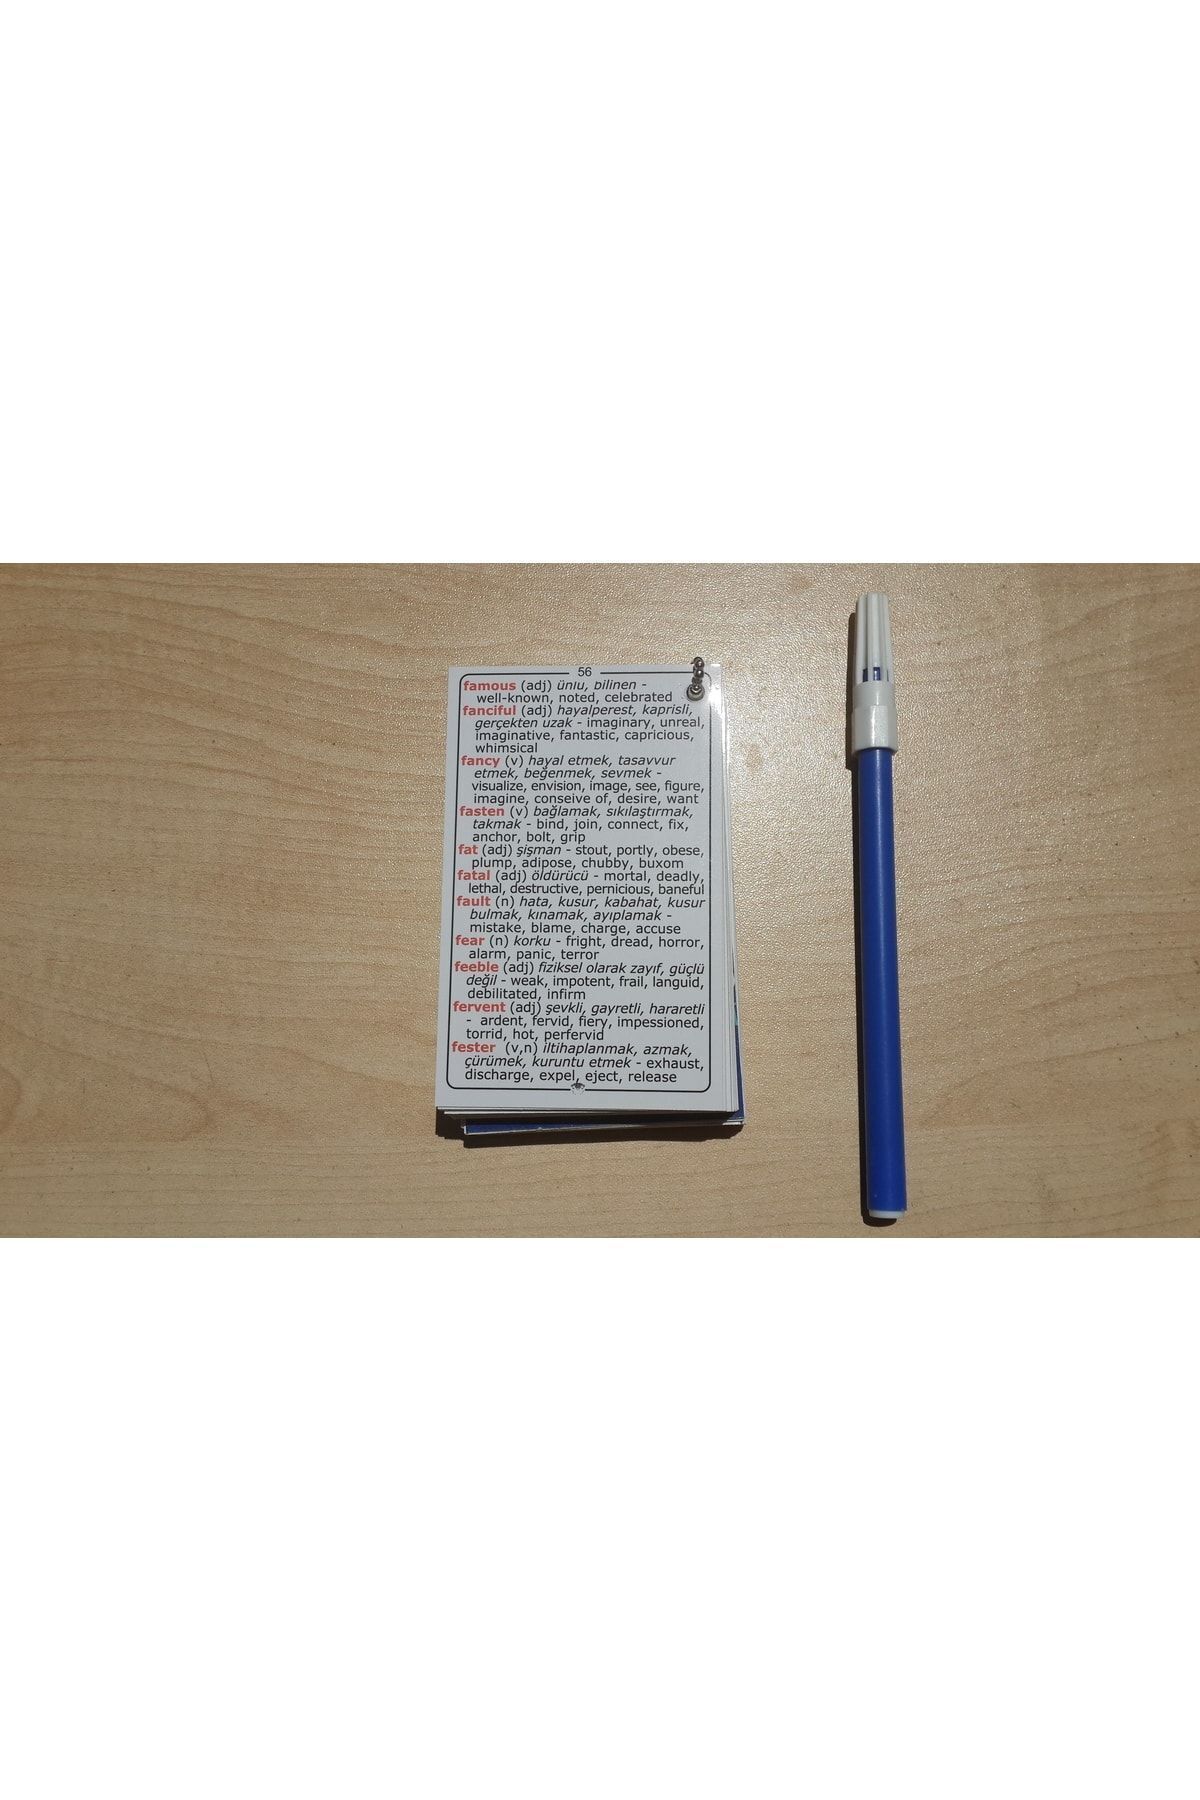 56
famous (adj) ünlu, bilinen -
well-known, noted, celebrated
fanciful (adj) hayalperest, kaprisli,
gerçekten uzak - imaginary, unreal,
imaginative, fantastic, capricious,
whimsical
fancy (v) hayal etmek, tasavvur
etmek, beğenmek, sevmek -
visualize, envision, image, see, figure,
imagine, conseive of, desire, want
fasten (v) bağlamak, sıkılaştırmak,
takmak - bind, join, connect, fix,
anchor, bolt, grip
fat (adj) şişman - stout, portly, obese,
plump, adipose, chubby, buxom
fatal (adj) öldürücü - mortal, deadly,
lethal, destructive, pernicious, baneful
fault (n) hata, kusur, kabahat, kusur
bulmak, kınamak, ayıplamak -
mistake, blame, charge, accuse
fear (n) korku - fright, dread, horror,
alarm, panic, terror
feeble (adj) fiziksel olarak zayıf, güçlü
değil - weak, impotent, frail, languid,
debilitated, infirm
fervent (adj) şevkli, gayretli, hararetli
- ardent, fervid, fiery, impessioned,
torrid, hot, perfervid
fester (v,n) iltihaplanmak, azmak,
çürümek, kuruntu etmek - exhaust,
discharge, expel, eject, release